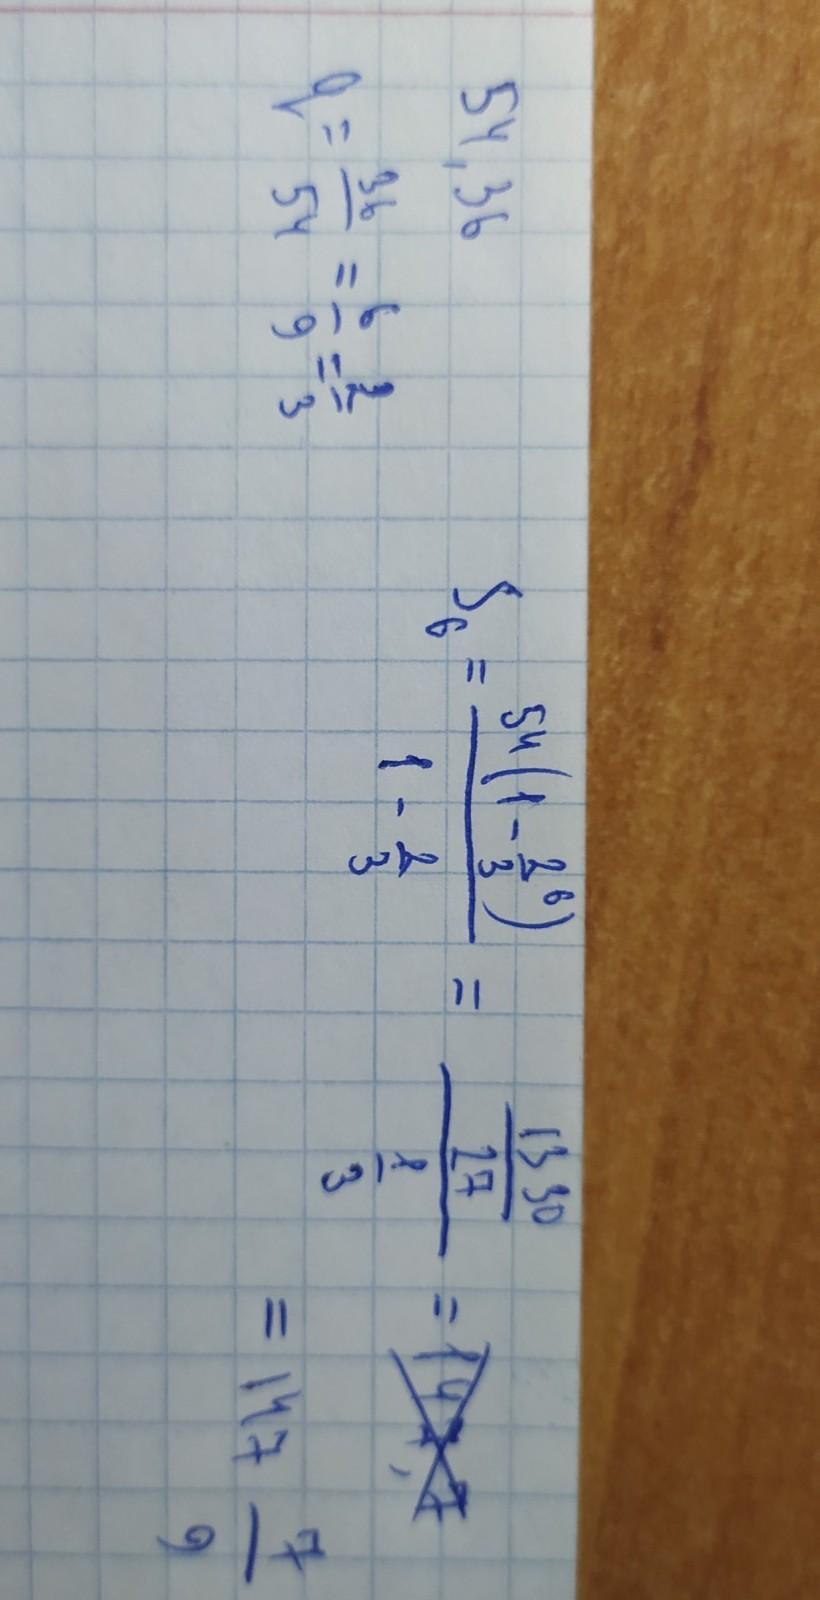 54, 36
q = 36/54 = 6/9 = 2/3
S₆ = 54(1 - 2/3⁶) / (1 - 2/3) = (1330/27) / (1/3) =
= 147 7/9